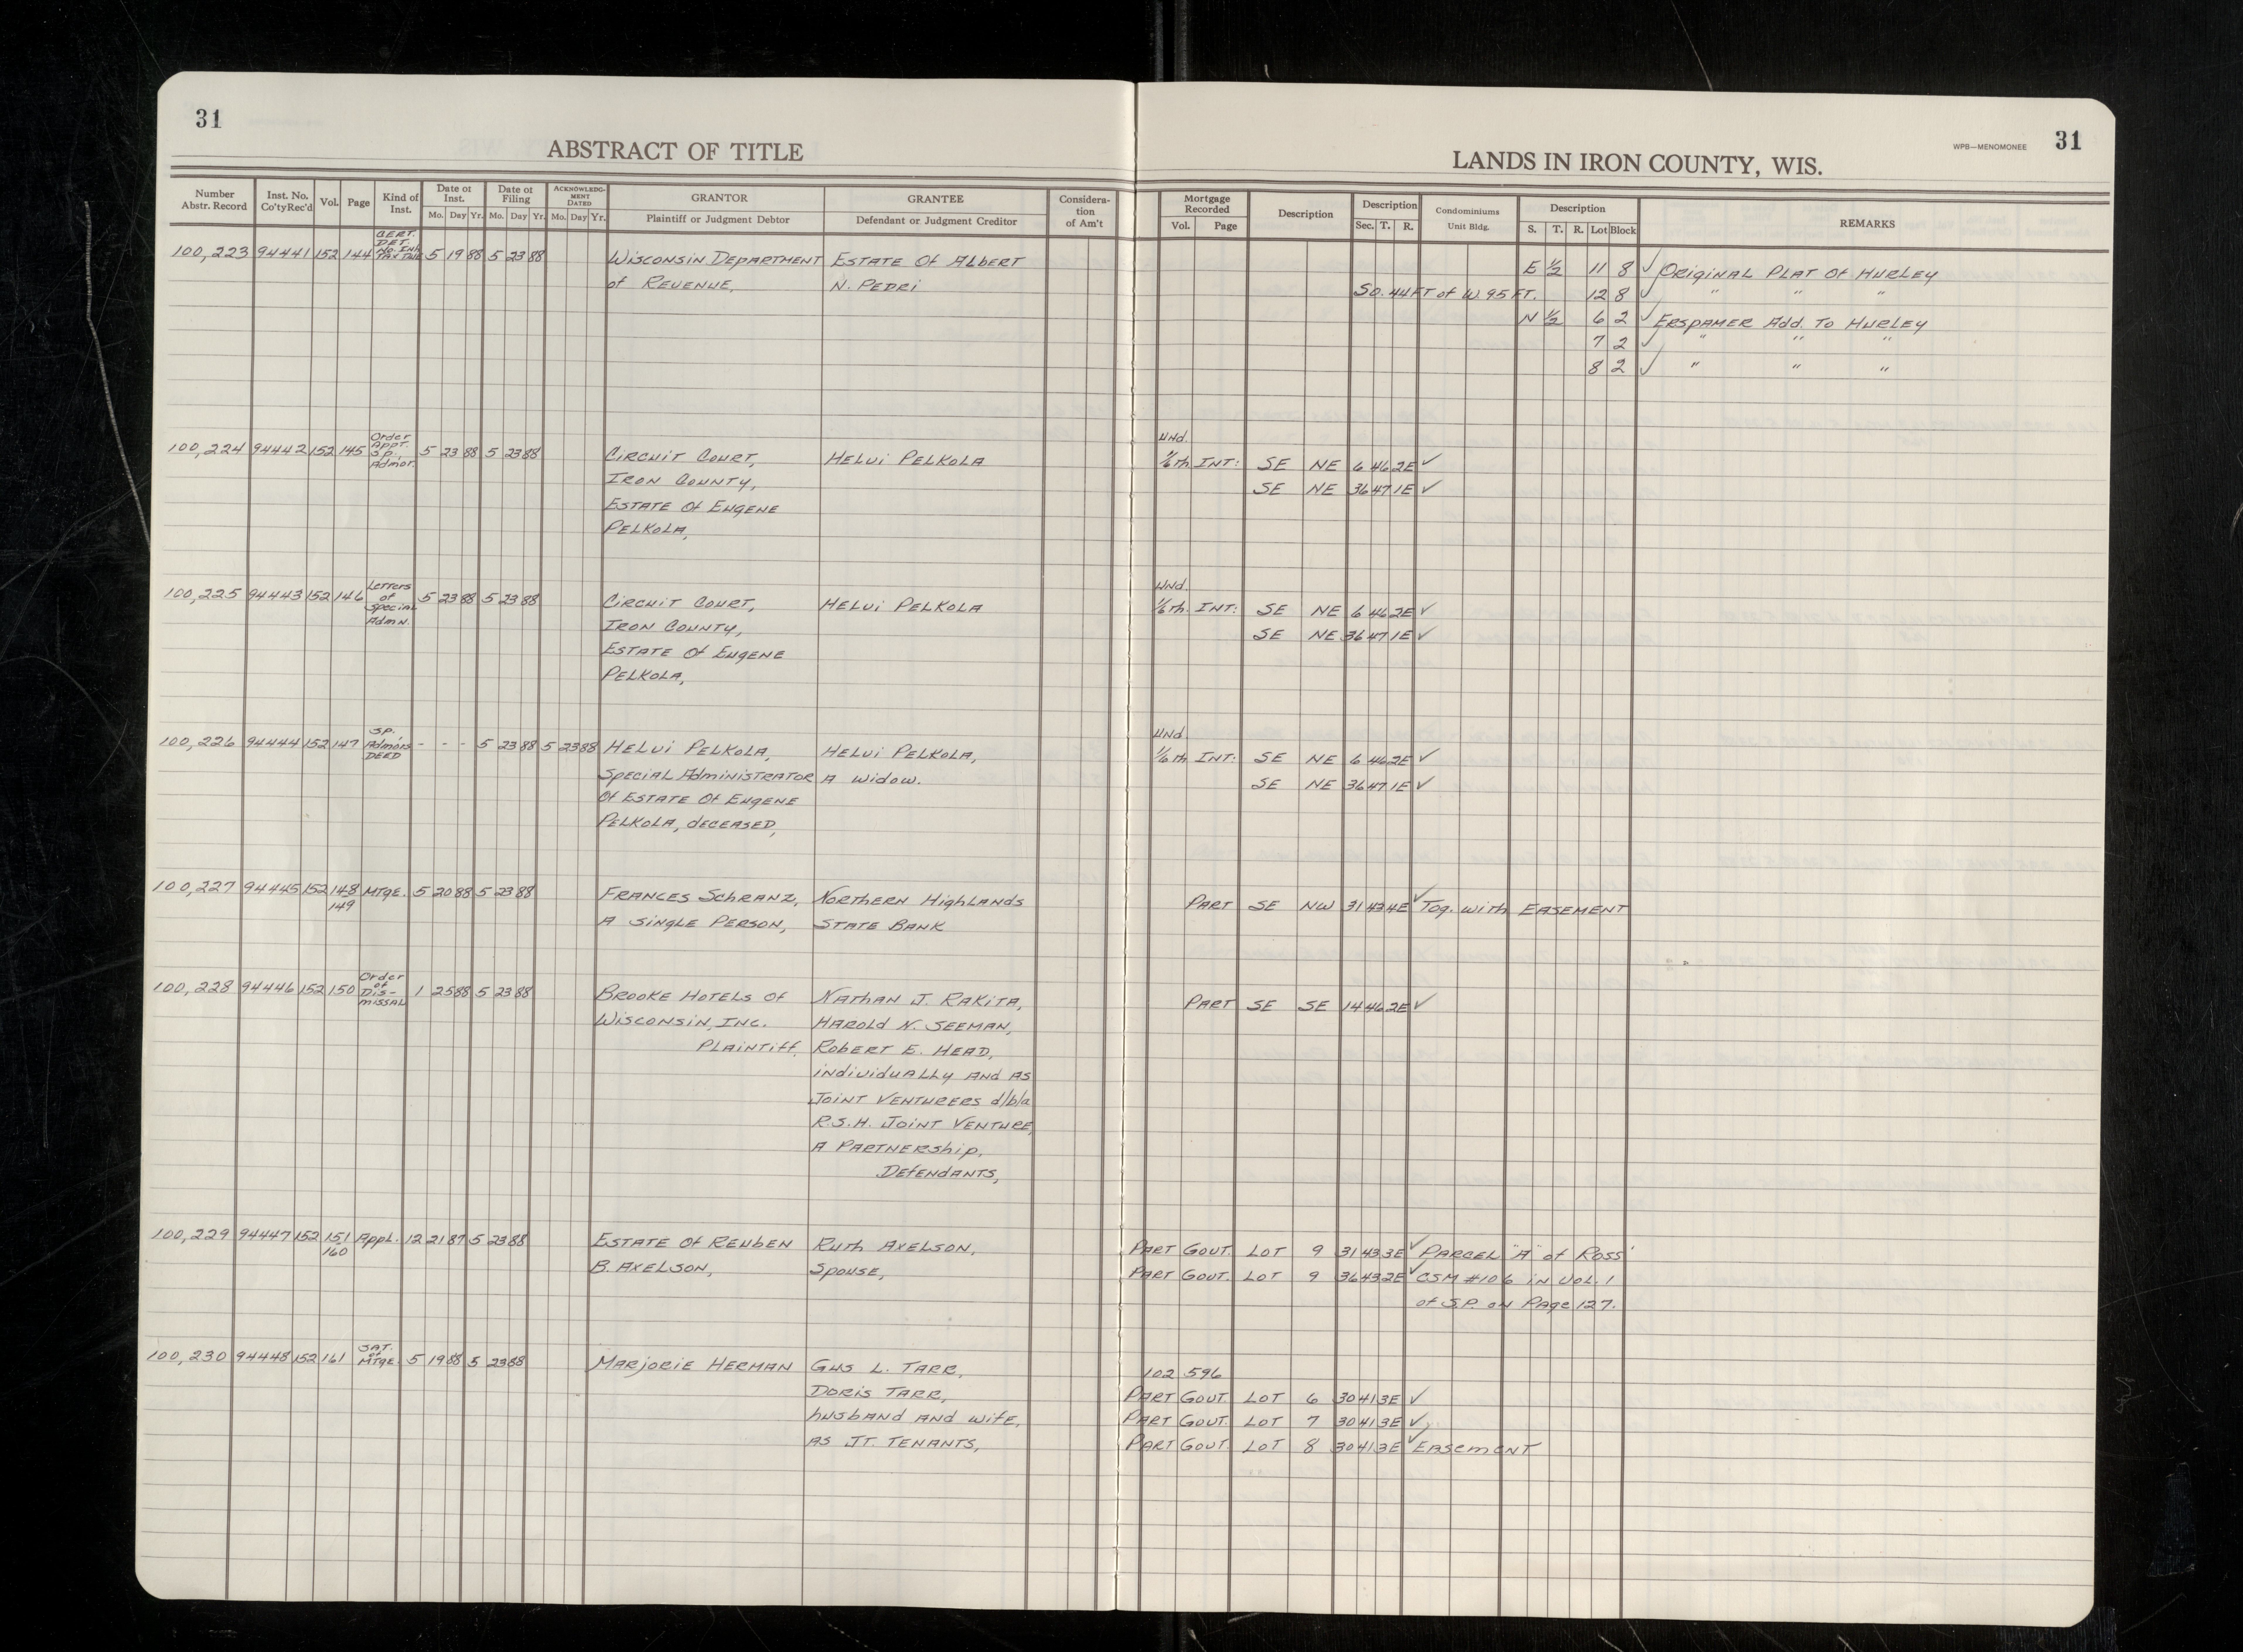 31
ABSTRACT OF TITLE
LANDS IN IRON COUNTY, WIS.
WPB—MENOMONEE 31
Number Abstr. Record Inst. No. Co'ty Rec'd Vol. Page Kind of Inst. Date of Inst. Mo. Day Yr. Date of Filing Mo. Day Yr. ACKNOWLEDGMENT DATED Mo. Day Yr. GRANTOR Plaintiff or Judgment Debtor GRANTEE Defendant or Judgment Creditor Consideration of Am't
Mortgage Recorded Vol. Page Description Description Sec. T. R. Condominiums Unit Bldg. Description S. T. R. Lot Block REMARKS
CERT. DET. No. Inh. TAX DUE
100,223 94441 152 144 5 19 88 5 23 88 WISCONSIN DEPARTMENT ESTATE Of ALBERT
of REVENUE, N. PEDRI
E 1/2 11 8 ✓ ORIGINAL PLAT OF HURLEY
SO. 44 FT of W. 95 FT. 12 8 ✓ " " "
N 1/2 6 2 ✓ ERSPAMER Add. TO HURLEY
7 2 ✓ " " "
8 2 ✓ " " "
Order Appt. Sp. Admor.
100,224 94442 152 145 5 23 88 5 23 88 CIRCUIT COURT, HELVI PELKOLA
IRON COUNTY,
ESTATE Of EUGENE
PELKOLA,
Und.
1/6th INT: SE NE 6 46 2E ✓
SE NE 36 47 1E ✓
Letters of Special Admn.
100,225 94443 152 146 5 23 88 5 23 88 CIRCUIT COURT, HELVI PELKOLA
IRON COUNTY,
ESTATE Of EUGENE
PELKOLA,
Und.
1/6th INT: SE NE 6 46 2E ✓
SE NE 36 47 1E ✓
SP. Admors DEED
100,226 94444 152 147 - - - 5 23 88 5 23 88 HELVI PELKOLA, HELVI PELKOLA,
SPECIAL ADMINISTRATOR A Widow.
Of ESTATE Of EUGENE
PELKOLA, dECEASED,
Und.
1/6th INT: SE NE 6 46 2E ✓
SE NE 36 47 1E ✓
100,227 94445 152 148 MTGE. 5 20 88 5 23 88 FRANCES SCHRANZ, NORTHERN HIGHLANDS
149 A SINGLE PERSON, STATE BANK
PART SE NW 31 43 4E ✓ Tog. with EASEMENT
Order of Dis-missal
100,228 94446 152 150 1 25 88 5 23 88 BROOKE HOTELS OF NATHAN J. RAKITA,
WISCONSIN, INC. HAROLD N. SEEMAN,
PLAINTIFF, ROBERT E. HEAD,
individUALLY AND AS
JOINT VENTURERS d/b/a
R.S.H. JOINT VENTURE,
A PARTNERSHIP,
DEFENDANTS,
PART SE SE 14 46 2E ✓
100,229 94447 152 151 Appl. 12 21 87 5 23 88 ESTATE Of REUBEN RUTH AXELSON,
160 B. AXELSON, SPOUSE,
PART GOVT. LOT 9 31 43 3E ✓ PARCEL "A" of ROSS'
PART GOVT. LOT 9 36 43 2E ✓ CSM #106 in VOL. 1
of S.P. on Page 127.
SAT. of MTGE.
100,230 94448 152 161 5 19 88 5 23 88 MARJORIE HERMAN GUS L. TARR,
DORIS TARR,
husband AND wife,
AS JT. TENANTS,
102 596
PART GOVT. LOT 6 30 41 3E ✓
PART GOVT. LOT 7 30 41 3E ✓
PART GOVT. LOT 8 30 41 3E ✓ EASEMENT